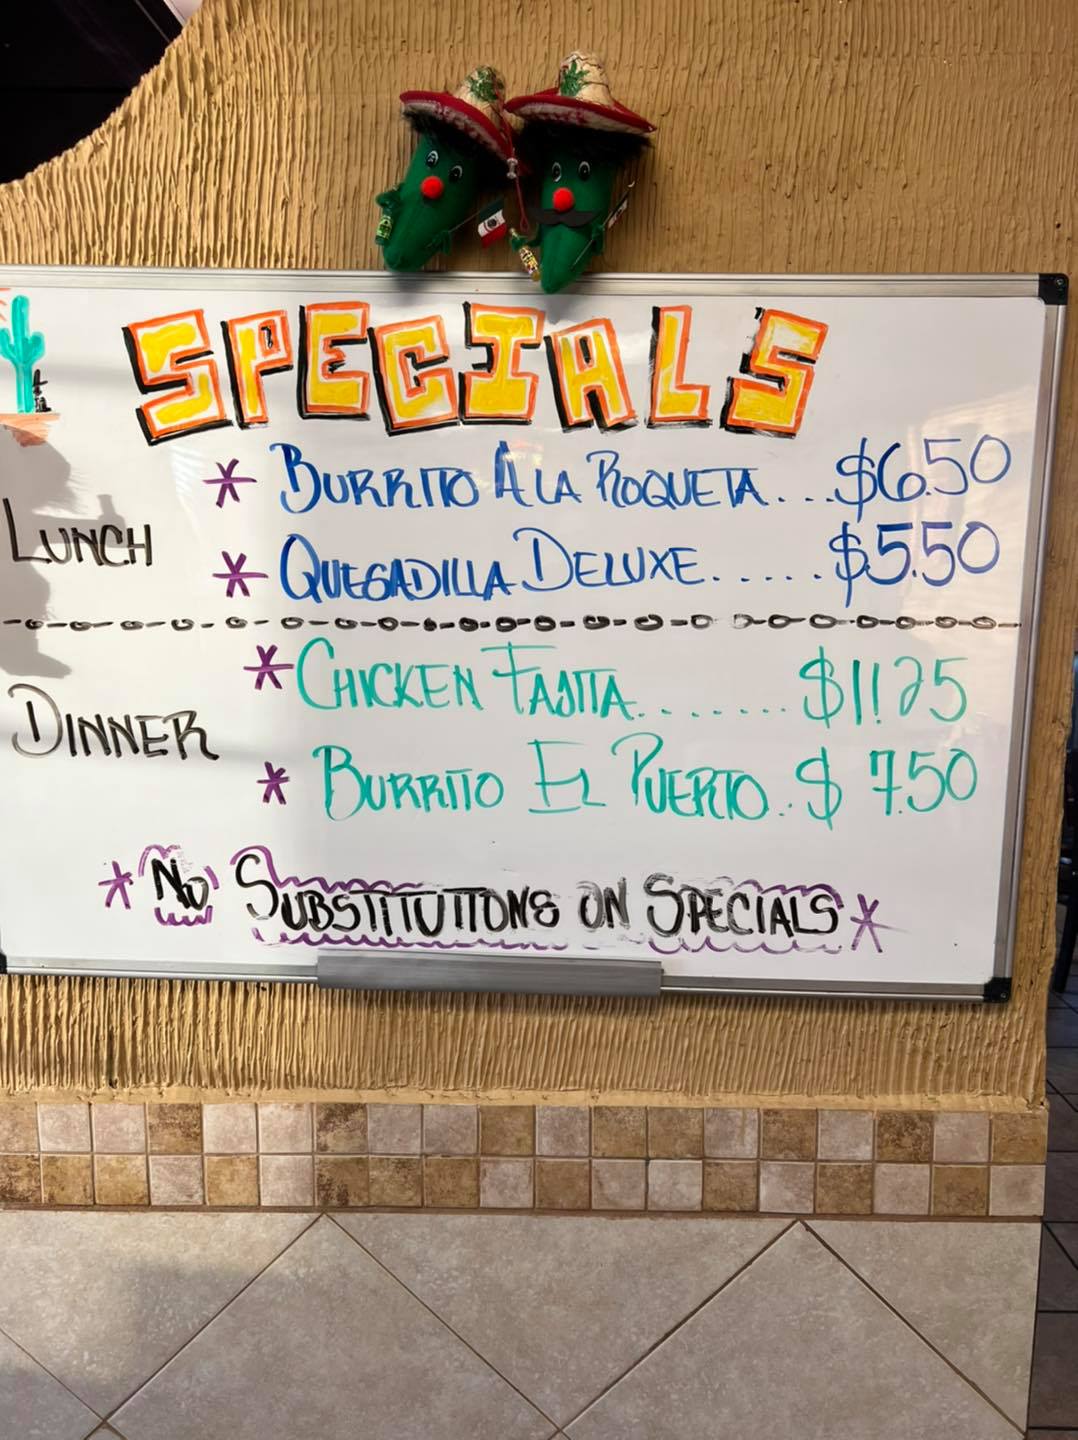 SPECIALS
LUNCH
* BURRITO A LA ROQUETA....$6.50
* QUESADILLA DELUXE......$5.50
DINNER
* CHICKEN FAJITA........$11.25
* BURRITO EL PUERTO..$ 7.50
* NO SUBSTITUTIONS ON SPECIALS *